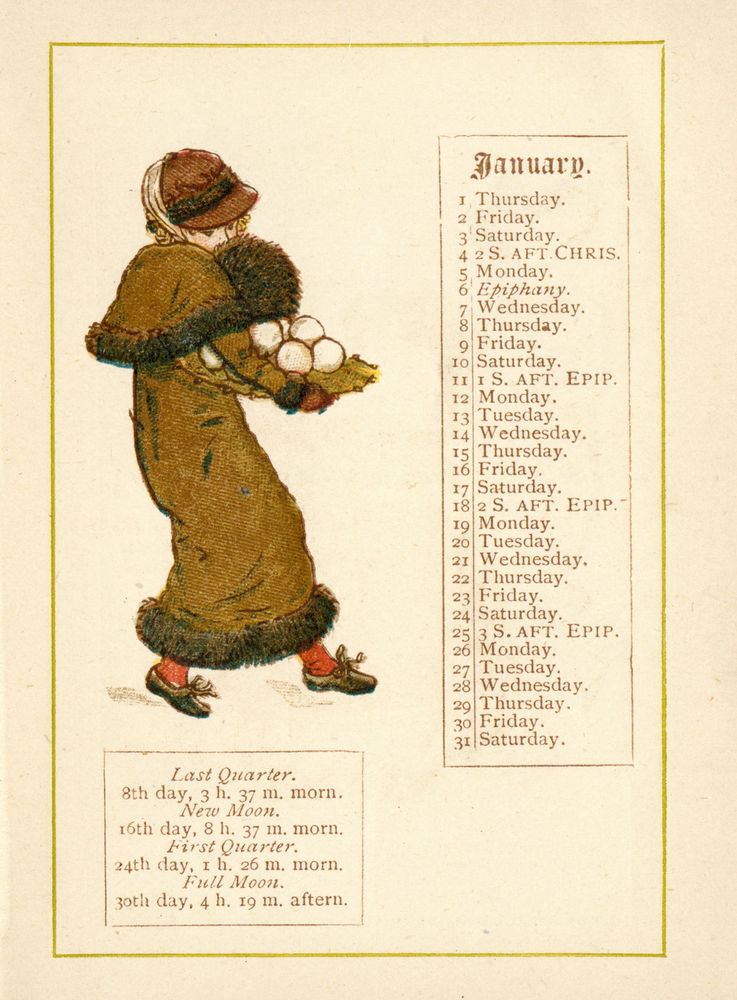 January.
1 Thursday.
2 Friday.
3 Saturday.
4 2 S. AFT. CHRIS.
5 Monday.
6 Epiphany.
7 Wednesday.
8 Thursday.
9 Friday.
10 Saturday.
11 1 S. AFT. EPIP.
12 Monday.
13 Tuesday.
14 Wednesday.
15 Thursday.
16 Friday.
17 Saturday.
18 2 S. AFT. EPIP.
19 Monday.
20 Tuesday.
21 Wednesday.
22 Thursday.
23 Friday.
24 Saturday.
25 3 S. AFT. EPIP.
26 Monday.
27 Tuesday.
28 Wednesday.
29 Thursday.
30 Friday.
31 Saturday.
Last Quarter.
8th day, 3 h. 37 m. morn.
New Moon.
16th day, 8 h. 37 m. morn.
First Quarter.
24th day, 1 h. 26 m. morn.
Full Moon.
30th day, 4 h. 19 m. aftern.